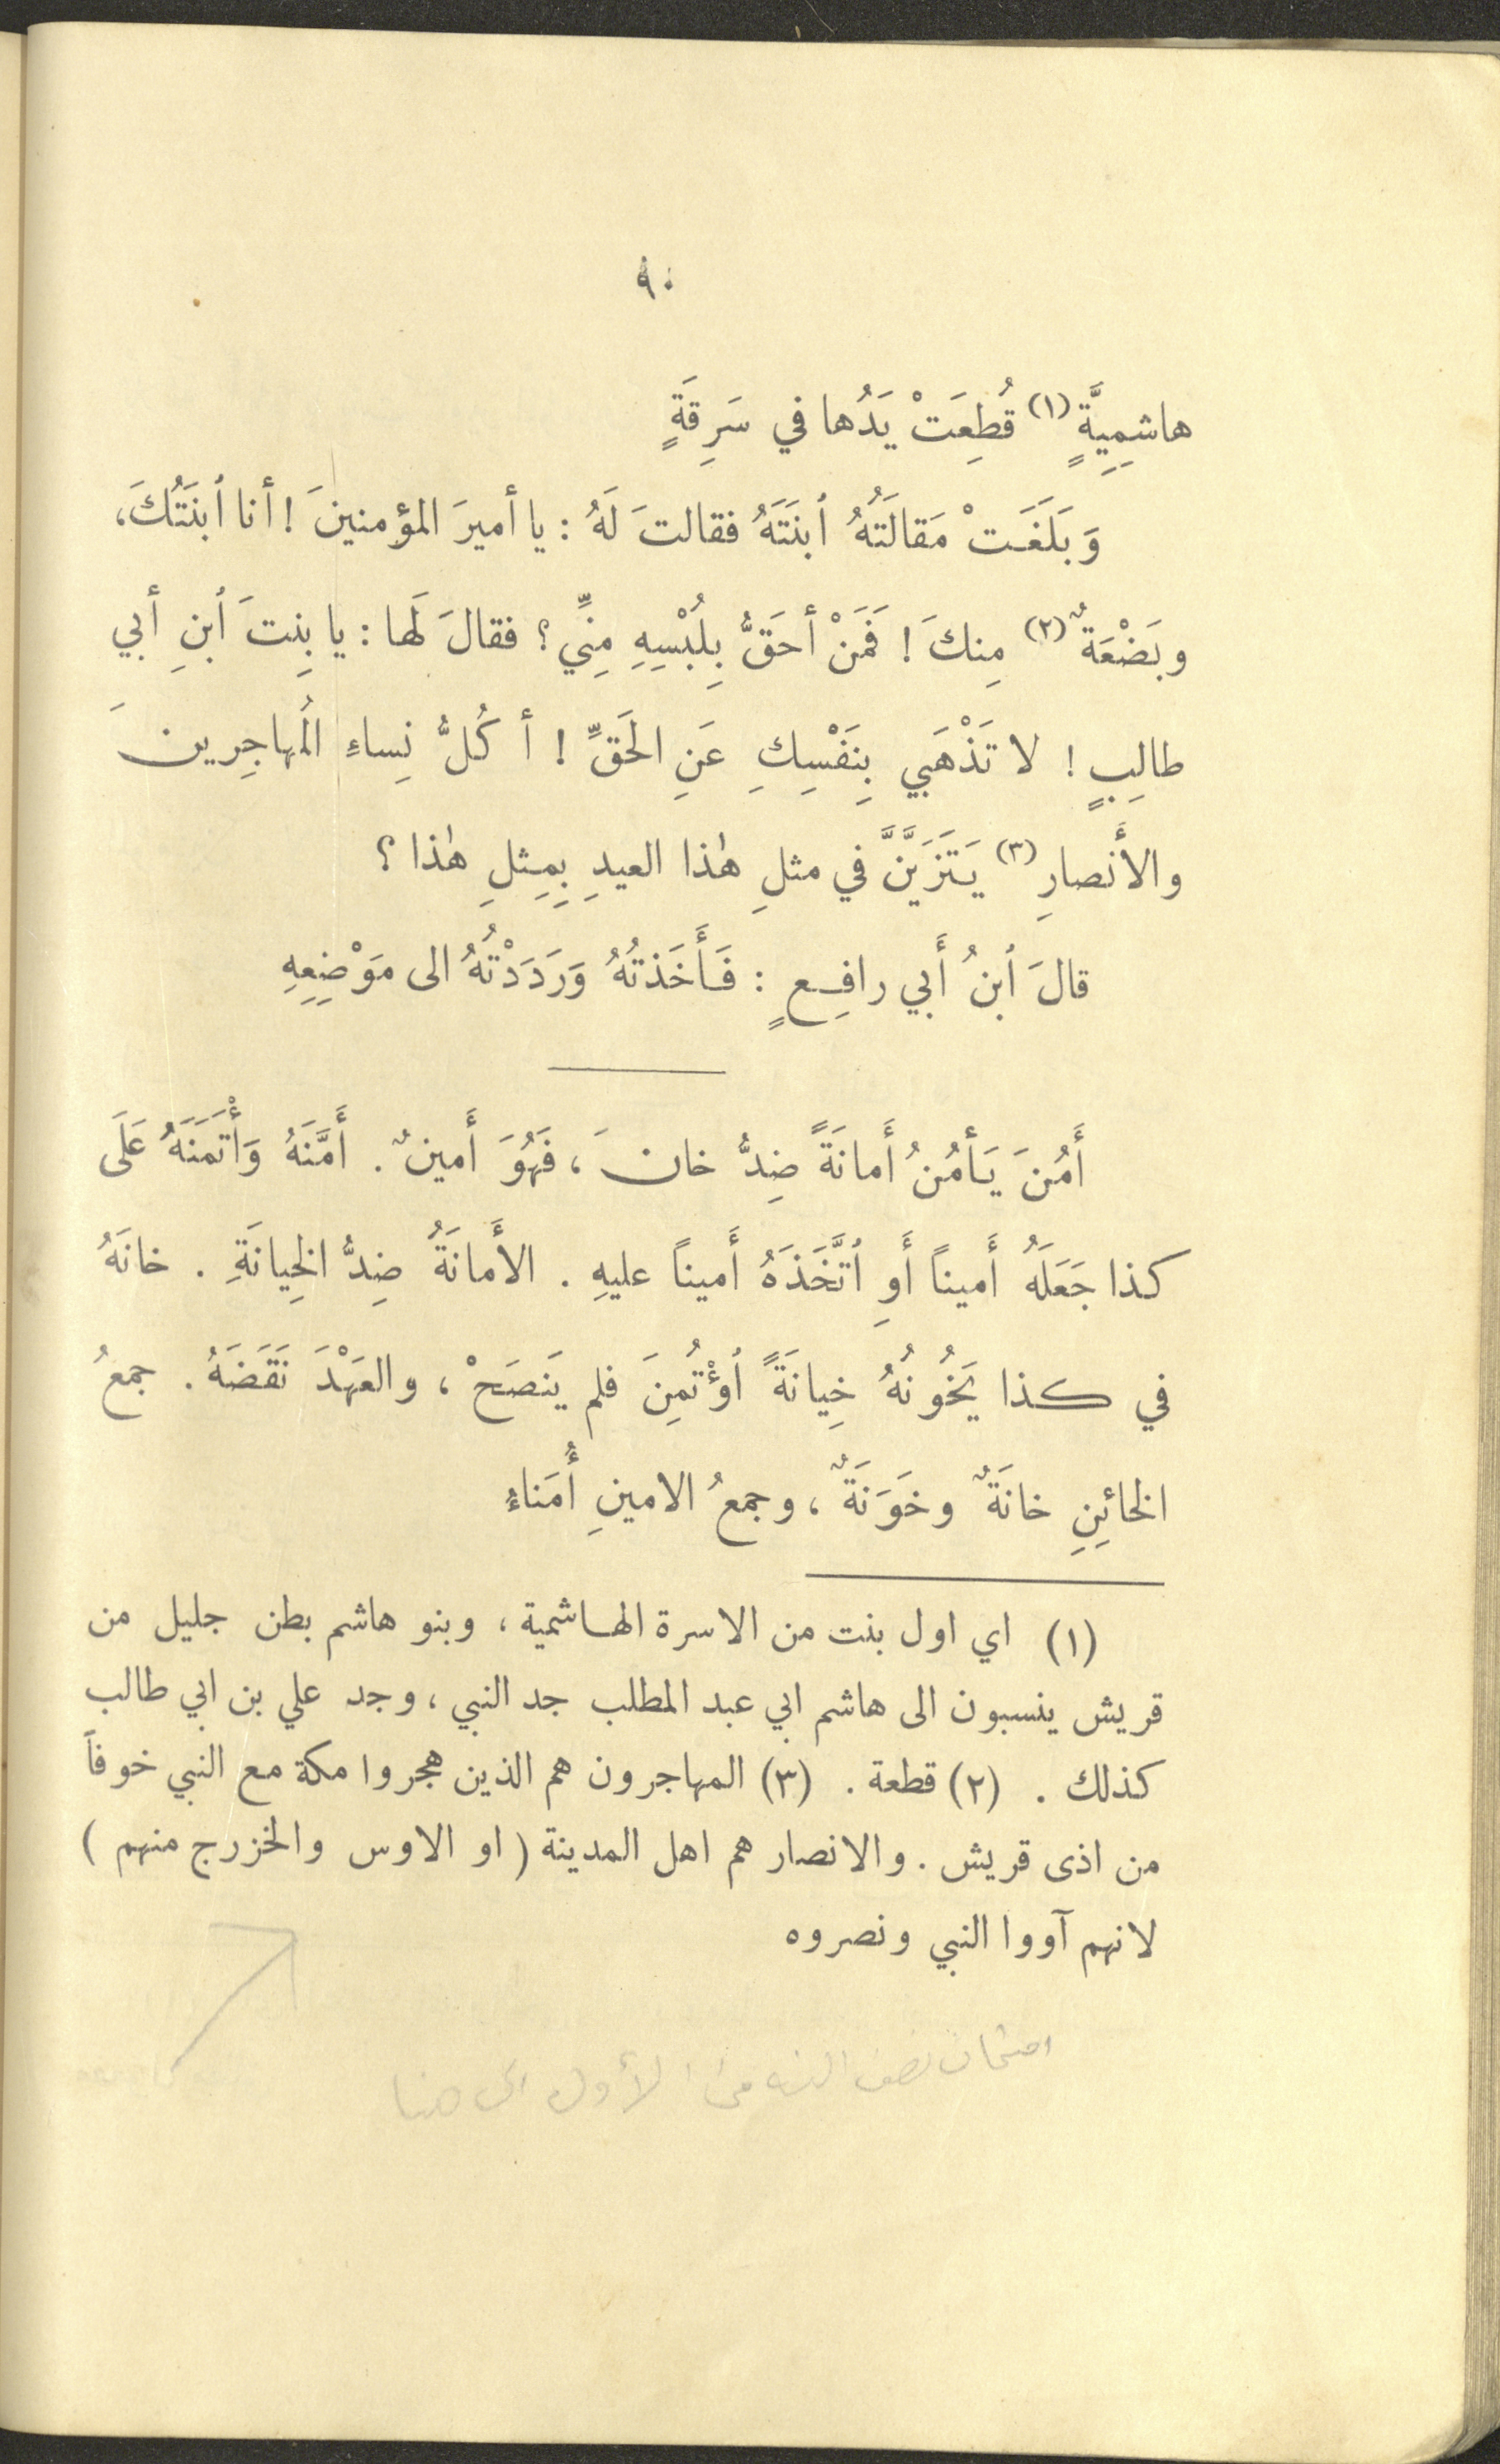 ٩٠
هاشِمِيَّةٍ (١) قُطِعَتْ يَدُها في سَرِقَةٍ
وَبَلَغَتْ مَقالَتُهُ ٱبنَتَهُ فقالتَ لَهُ : يا أميرَ المؤمنينَ ! أنا ٱبنَتُكَ،
وبَضْعَةٌ (٢) مِنكَ ! فَمَنْ أحَقُّ بِلُبْسِهِ مِنِّي ؟ فقالَ لَها : يا بِنتَ ٱبنِ أبي
طالِبٍ ! لا تَذْهَبي بِنَفْسِكِ عَنِ الحَقِّ ! أ كُلُّ نِساءِ المُهاجِرينَ
والأَنصارِ (٣) يَتَزَيَّنَّ في مثلِ هٰذا العيدِ بِمِثلِ هٰذا ؟
قالَ ٱبنُ أَبي رافِعٍ : فَأَخَذتُهُ وَرَدَدْتُهُ الى مَوْضِعِهِ
أَمُنَ يَأمُنُ أَمانَةً ضِدُّ خانَ ، فَهُوَ أَمينٌ . أَمَّنَهُ وَأْتَمَنَهُ عَلَى
كذا جَعَلَهُ أَميناً أَوِ ٱتَّخَذَهُ أَميناً عليهِ . الأَمانَةُ ضِدُّ الخِيانَةِ . خانَهُ
في كذا يَخُونُهُ خِيانَةً ٱؤْتُمِنَ فلم يَنصَحْ ، والعَهْدَ نَقَضَهُ . جمعُ
الخائِنِ خانَةٌ وخَوَنَةٌ ، وجمعُ الامينِ أُمَناءُ
(١) اي اول بنت من الاسرة الهاشمية ، وبنو هاشم بطن جليل من
قريش ينسبون الى هاشم ابي عبد المطلب جد النبي ، وجد علي بن ابي طالب
كذلك . (٢) قطعة . (٣) المهاجرون هم الذين هجروا مكة مع النبي خوفاً
من اذى قريش . والانصار هم اهل المدينة ( او الاوس والخزرج منهم )
لانهم آووا النبي ونصروه
امتحان نصف السنه من الأول الى هنا